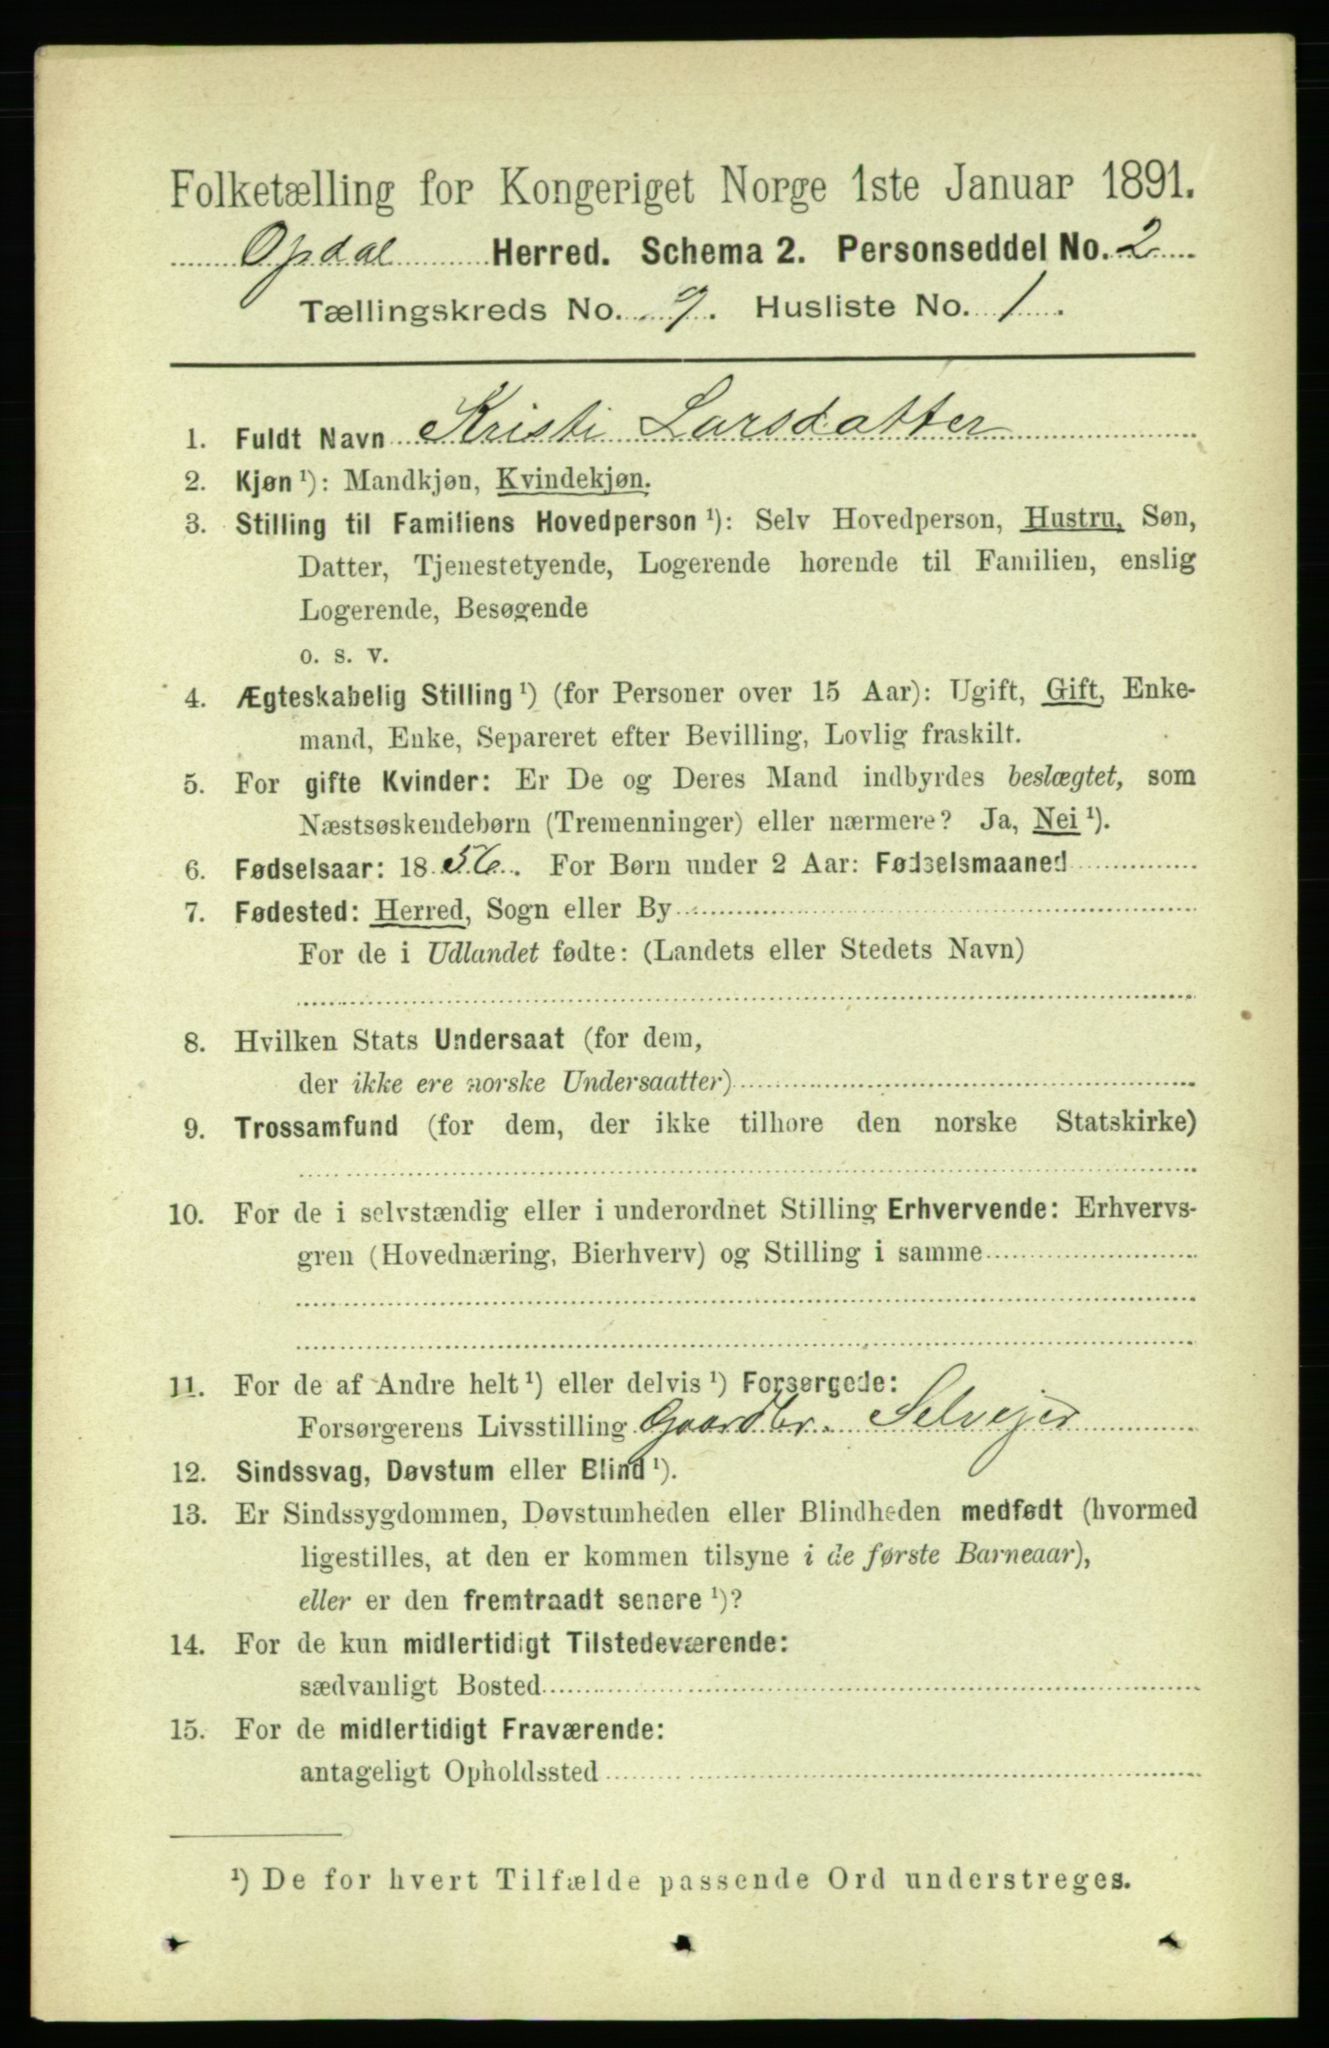 Folketælling for Kongeriget Norge 1ste Januar 1891.
Opdal Herred. Schema 2. Personseddel No. 2
Tællingskreds No. 9. Husliste No. 1.
1. Fuldt Navn Kristi Larsdatter
2. Kjøn ¹): Mandkjøn, Kvindekjøn.
3. Stilling til Familiens Hovedperson ¹): Selv Hovedperson, Hustru, Søn,
Datter, Tjenestetyende, Logerende hørende til Familien, enslig
Logerende, Besøgende
o. s. v.
4. Ægteskabelig Stilling ¹) (for Personer over 15 Aar): Ugift, Gift, Enke-
mand, Enke, Separeret efter Bevilling, Lovlig fraskilt.
5. For gifte Kvinder: Er De og Deres Mand indbyrdes beslægtet, som
Næstsøskendebørn (Tremenninger) eller nærmere? Ja, Nei ¹).
6. Fødselsaar: 1856. For Børn under 2 Aar: Fødselsmaaned
7. Fødested: Herred, Sogn eller By
For de i Udlandet fødte: (Landets eller Stedets Navn)
8. Hvilken Stats Undersaat (for dem,
der ikke ere norske Undersaatter)
9. Trossamfund (for dem, der ikke tilhøre den norske Statskirke)
10. For de i selvstændig eller i underordnet Stilling Erhvervende: Erhvervs-
gren (Hovednæring, Bierhverv) og Stilling i samme
11. For de af Andre helt ¹) eller delvis ¹) Forsørgede:
Forsørgerens Livsstilling Gaardbr. Selvejer
12. Sindssvag, Døvstum eller Blind ¹).
13. Er Sindssygdommen, Døvstumheden eller Blindheden medfødt (hvormed
ligestilles, at den er kommen tilsyne i de første Barneaar),
eller er den fremtraadt senere ¹)?
14. For de kun midlertidigt Tilstedeværende:
sædvanligt Bosted
15. For de midlertidigt Fraværende:
antageligt Opholdssted
¹) De for hvert Tilfælde passende Ord understreges.